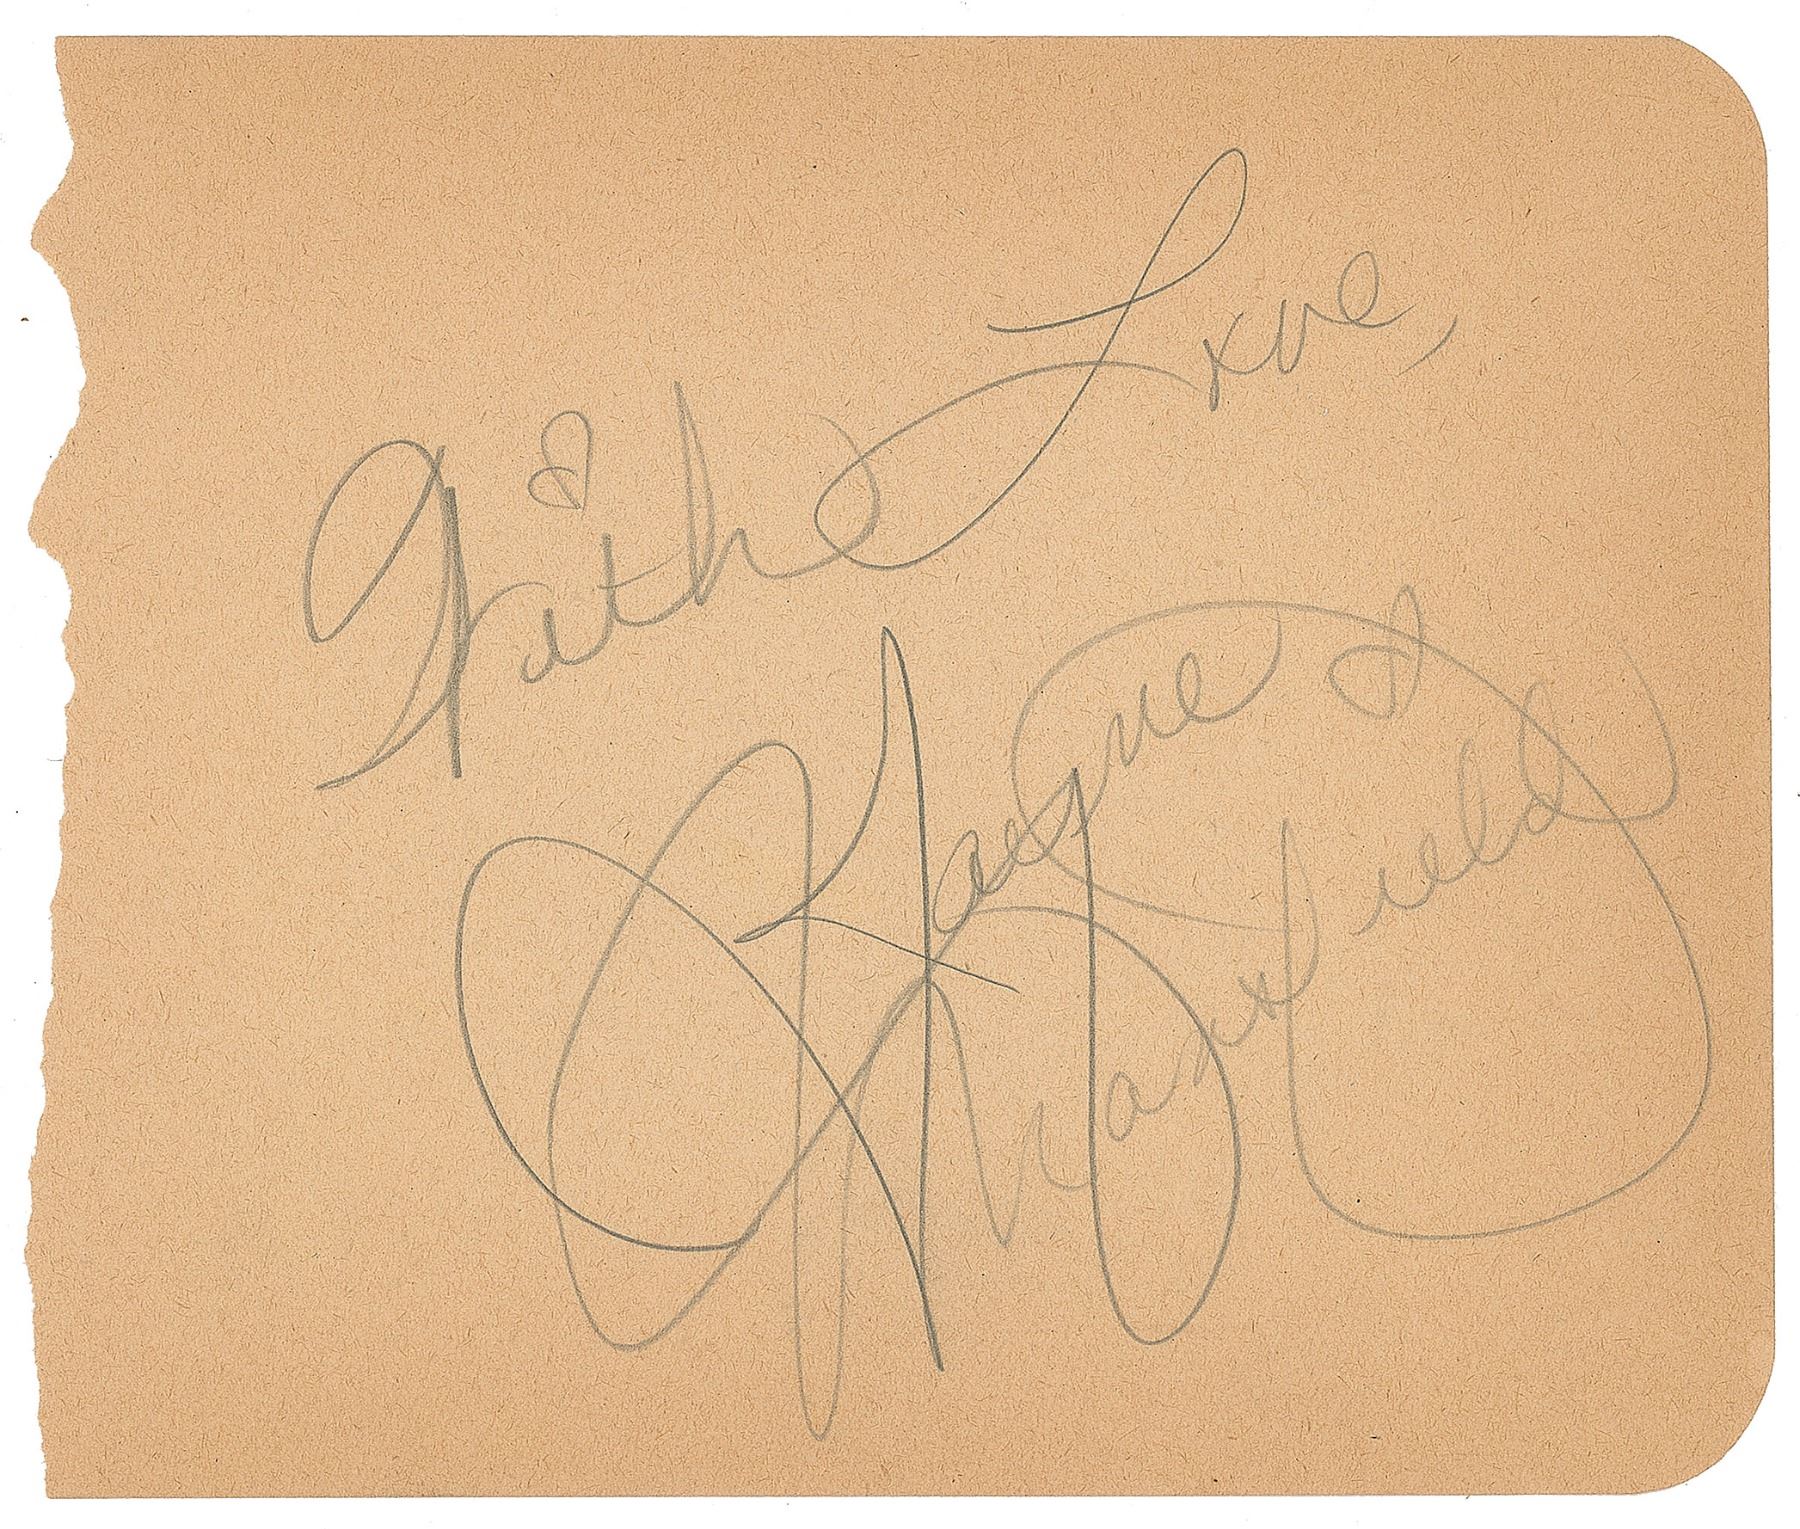 With Love,
Jayne
Mansfield